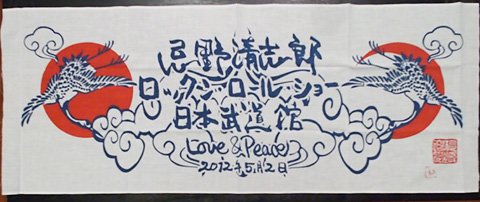 忌野清志郎
ロックン・ロール・ショー
日本武道館
Love & Peace
2012年5月2日